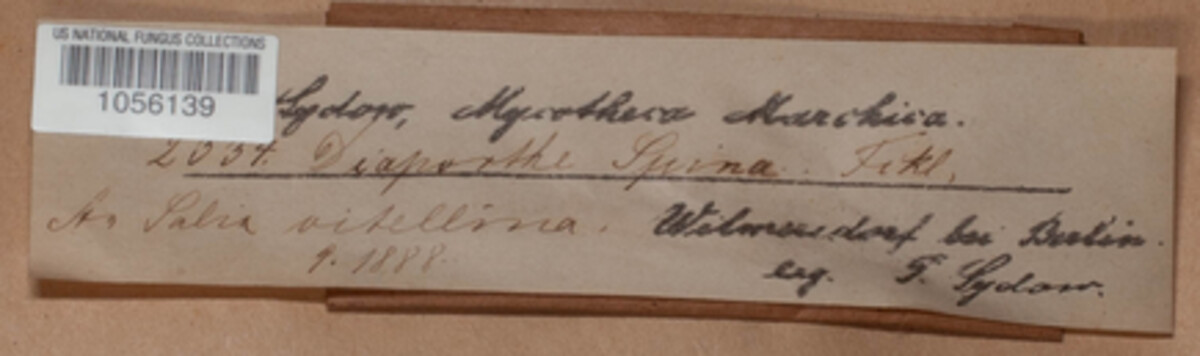 US NATIONAL FUNGUS COLLECTIONS
1056139
Sydow, Mycotheca Marchica.
2034. Diaporthe Spina. Fckl.
An Salix vitellina. Wilmersdorf bei Berlin.
9. 1888. leg. P. Sydow.